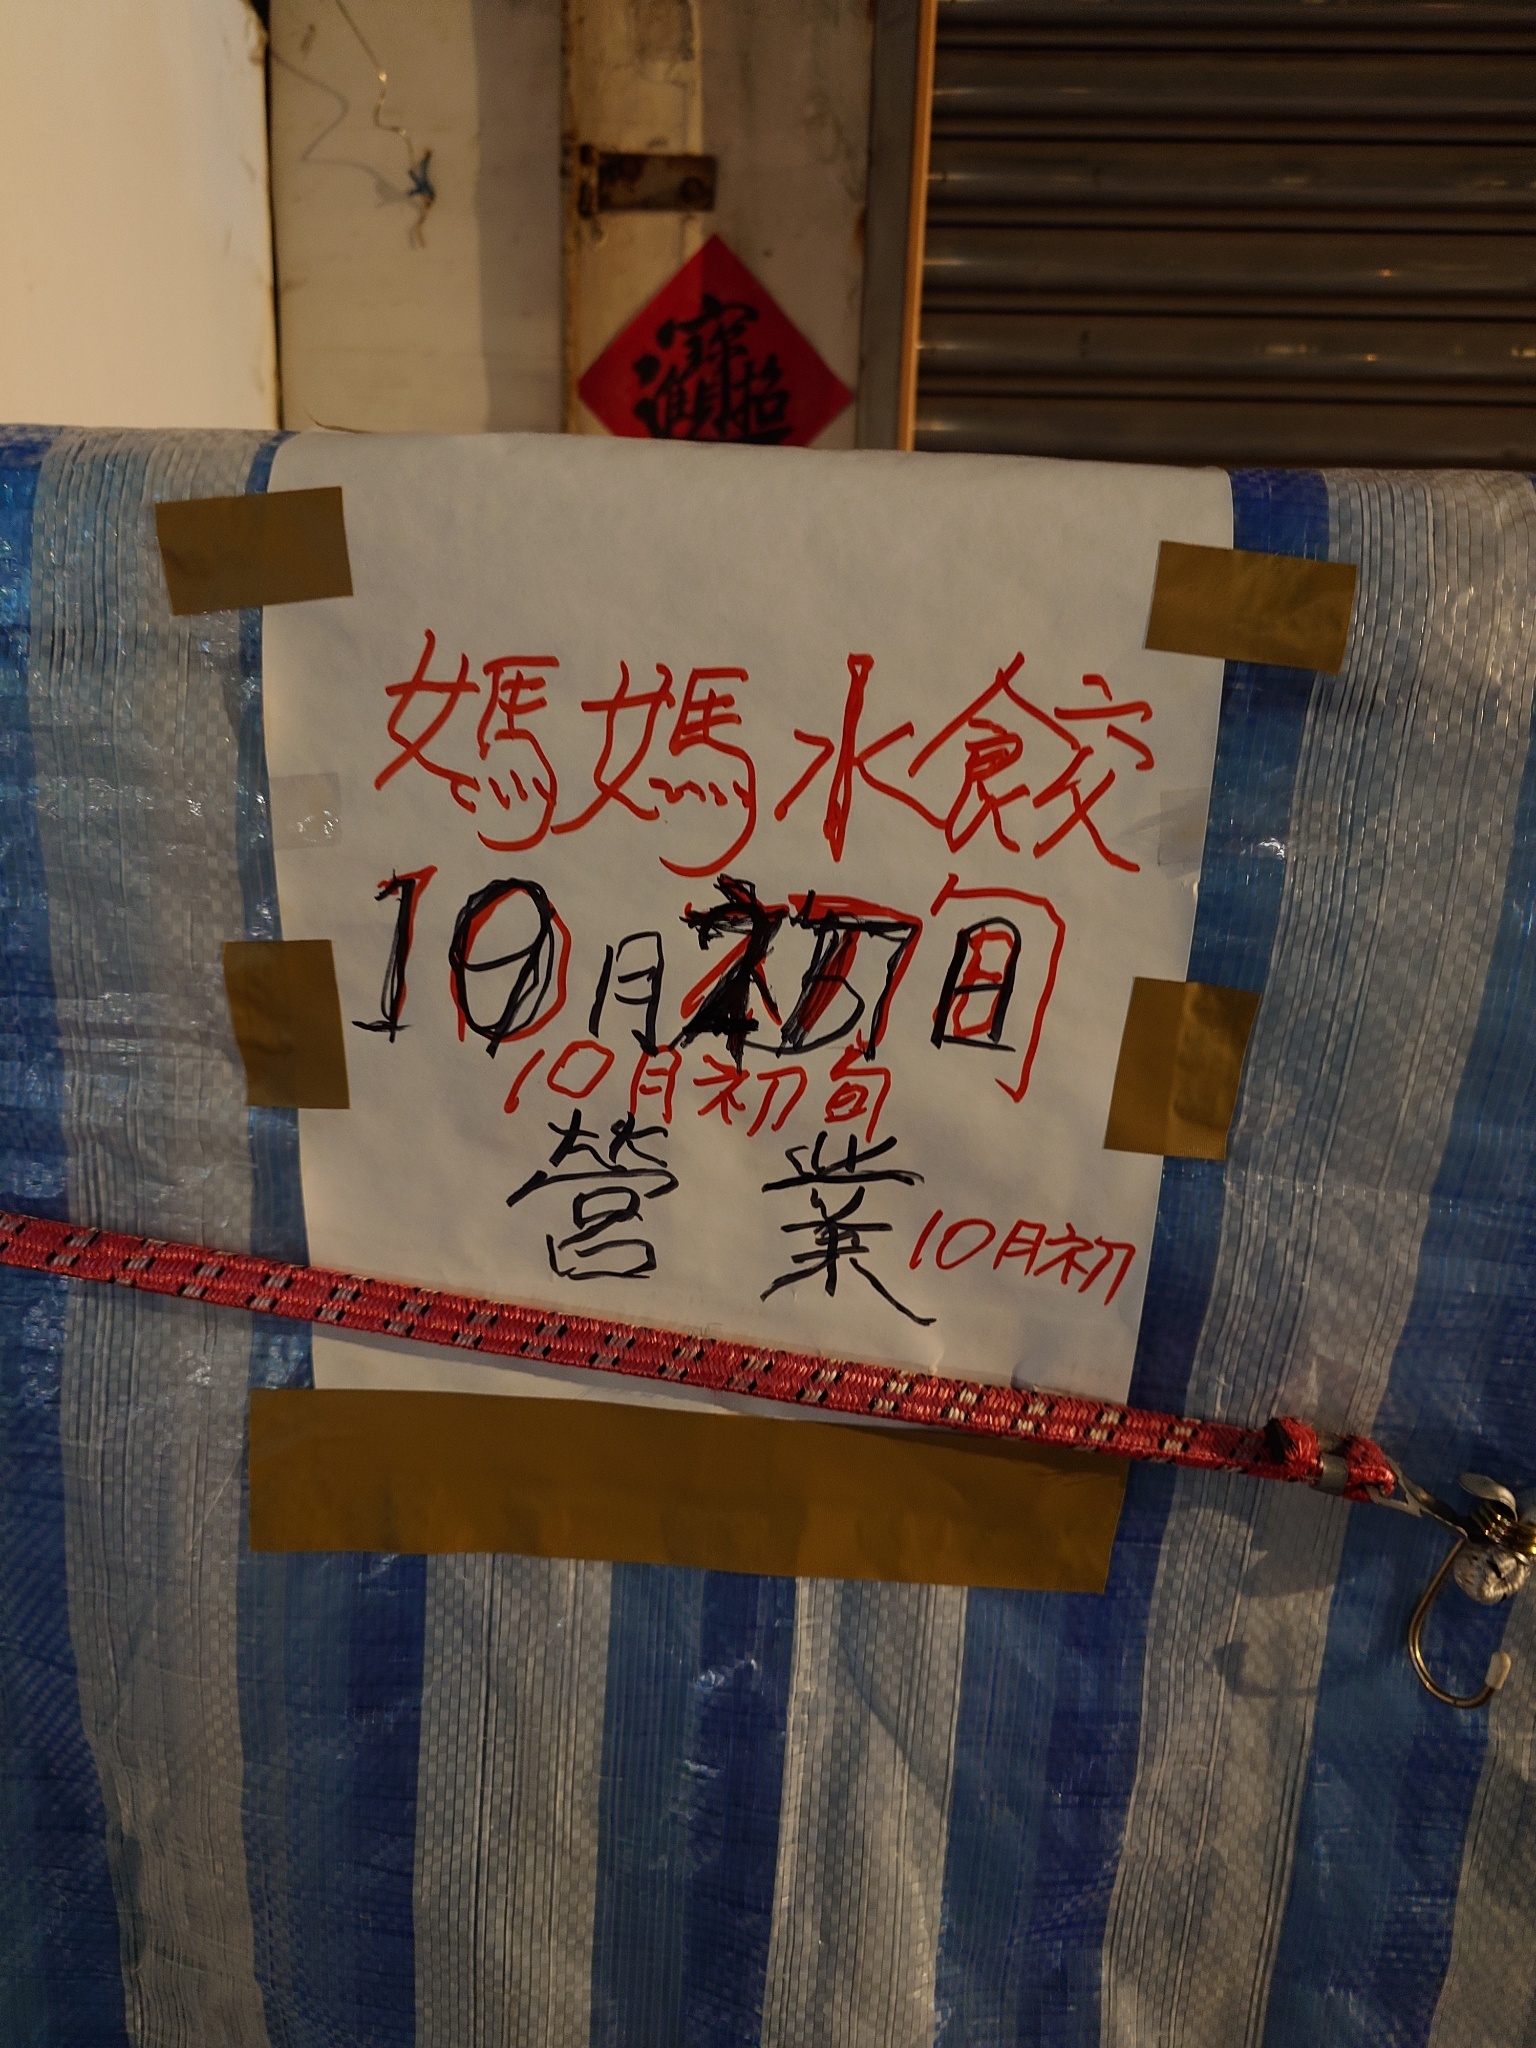 招財進寶
媽媽水餃
10月初旬
10月初旬
營業
10月初